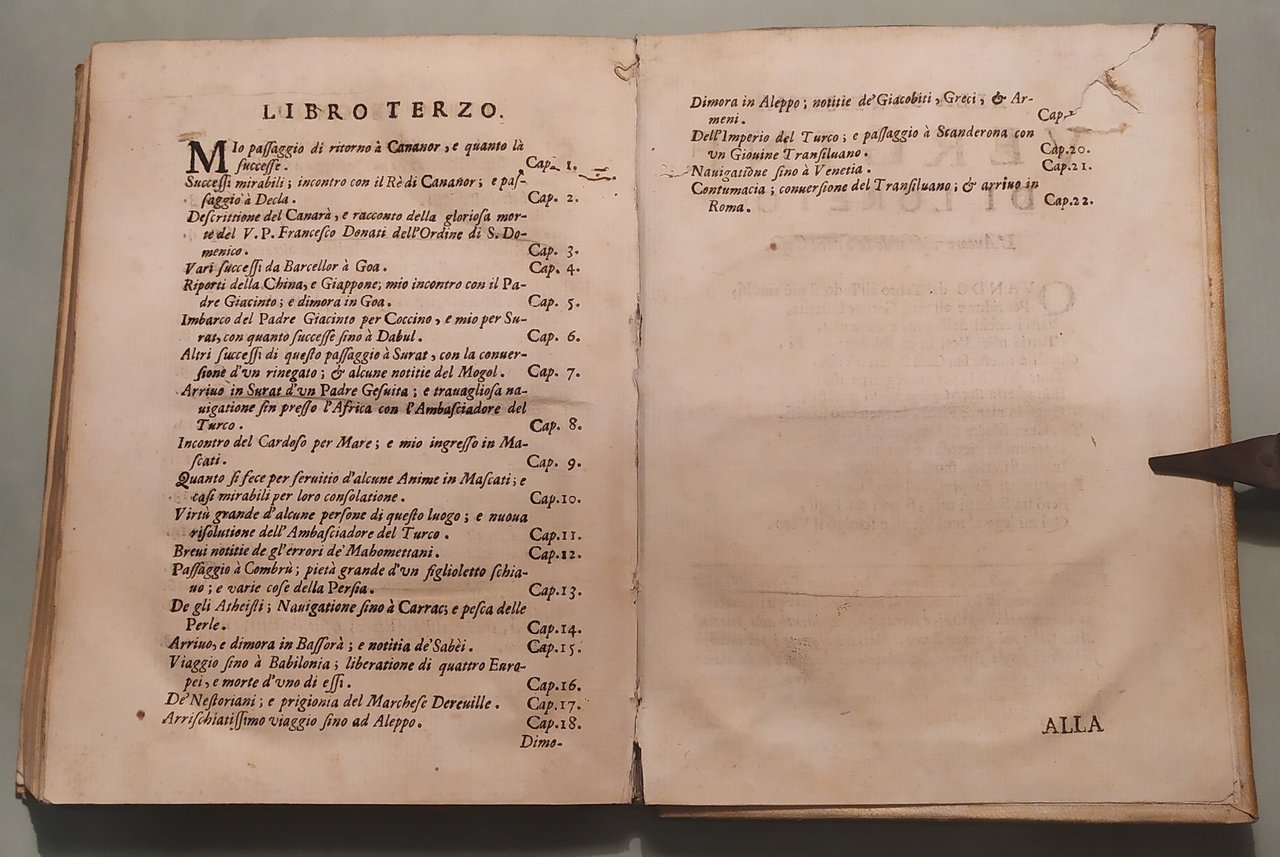 LIBRO TERZO.
MIo paſſaggio di ritorno à Cananor, e quanto là
ſucceſſe. Cap. 1.
Succeſſi mirabili; incontro con il Rè di Cananor; e paſ-
ſaggio à Decla. Cap. 2.
Deſcrittione del Canarà, e racconto della glorioſa mor-
te del V. P. Franceſco Donati dell'Ordine di S. Do-
menico. Cap. 3.
Vari ſucceſſi da Barcellor à Goa. Cap. 4.
Riporti della China, e Giappone; mio incontro con il Pa-
dre Giacinto; e dimora in Goa. Cap. 5.
Imbarco del Padre Giacinto per Coccino, e mio per Su-
rat, con quanto ſucceſſe ſino à Dabul. Cap. 6.
Altri ſucceſſi di queſto paſſaggio à Surat, con la conuer-
ſione d'vn rinegato; & alcune notitie del Mogol. Cap. 7.
Arriuo in Surat d'vn Padre Geſuita; e trauaglioſa na-
uigatione ſin preſſo l'Africa con l'Ambaſciadore del
Turco. Cap. 8.
Incontro del Cardoſo per Mare; e mio ingreſſo in Ma-
ſcati. Cap. 9.
Quanto ſi fece per ſeruitio d'alcune Anime in Maſcati; e
caſi mirabili per loro conſolatione. Cap.10.
Virtù grande d'alcune perſone di queſto luogo; e nuoua
riſolutione dell'Ambaſciadore del Turco. Cap.11.
Breui notitie de gl'errori de' Mahomettani. Cap.12.
Paſſaggio à Combrù; pietà grande d'vn figlioletto ſchia-
uo; e varie coſe della Perſia. Cap.13.
De gli Atheiſti; Nauigatione ſino à Carrac; e peſca delle
Perle. Cap.14.
Arriuo, e dimora in Baſſorà; e notitia de' Sabèi. Cap.15.
Viaggio ſino à Babilonia; liberatione di quattro Euro-
pei, e morte d'vno di eſſi. Cap.16.
De' Neſtoriani; e prigionia del Marcheſe Dereuille. Cap.17.
Arriſchiatiſſimo viaggio ſino ad Aleppo. Cap.18.
Dimo-
Dimora in Aleppo; notitie de' Giacobiti, Greci, & Ar-
meni. Cap.
Dell'Imperio del Turco; e paſſaggio à Scanderona con
vn Giouine Tranſiluano. Cap.20.
Nauigatione ſino à Venetia. Cap.21.
Contumacia; conuerſione del Tranſiluano; & arriuo in
Roma. Cap.22.
ALLA